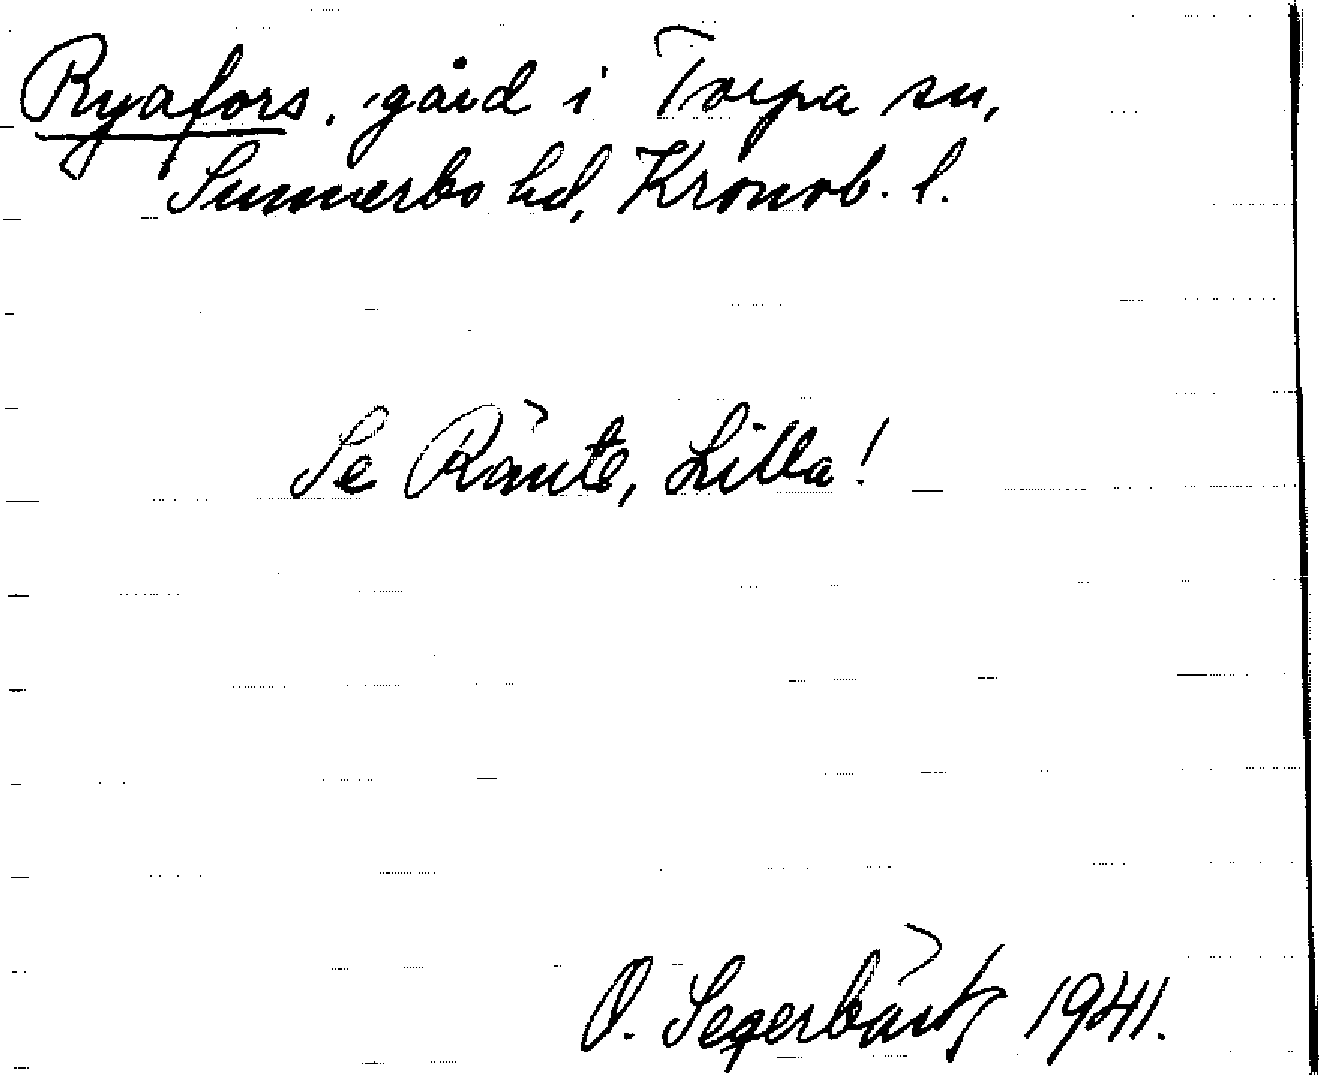 Ryafors, gård i Torpa sn,
Sunnerbo hd, Kronob. l.
Se Ränte, Lilla!
O. Segerbäck 1941.